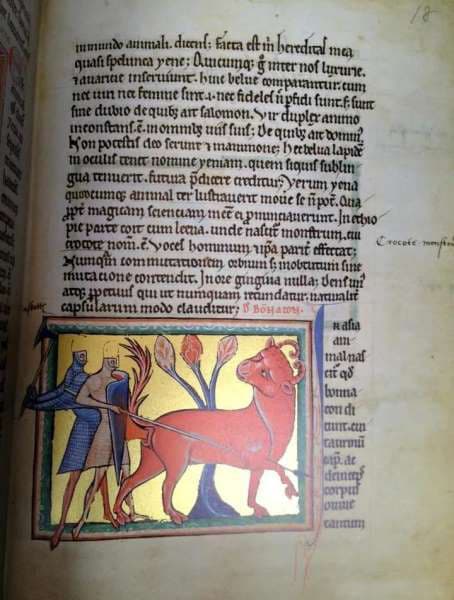 inmundo animali. dicens; Facta est m̄ hereditas mea
quasi spelunca yene; Quicumq; g̊ inter nos luxurie.
⁊ auaricie inseruiunt. huic belue comparantur. cum
nec uiri nec femine sint .i. nec fideles n̄ ꝑfidi sunt. s; sunt
sine dubio de quib; ait salomon. Vir duplex animo
inconstans. ē. in omnib; uiis suis; De quib; ait domin'.
Non potestis deo seruire ⁊ mammone; Hec belua lapidē
in oculis tenet nomine yeniam. quem siquis sub lin
gua tenuerit. futura p̄dicere creditur; Verum yena
quocumq; animal ter lustrauerit moue se n̄ pot. Qua
ꝓpt̄ magicam scienciam ei pronunciauerunt. In ethio
pie parte coit cum leena. unde nascit' monstrum. cui
crocote nom̄. ē. Voces hominum ⁊ ip̄a parit̄ effectat;
Nunqͣm commutationem orbium s; in obtutum sine
mutacione contendit. In ore gingiua nulla; Dens un'
atq; perpetuus qui ut numquam retundatur. naturalit̄
capsularum modo clauditur; D' Bonacon
In asia
ani
mal nas
cit' qd̄
bonna
con di
cunt. cui
taurinū
cap. ac
deinceps
corpus
omne
tantum
Crocote monstru
18